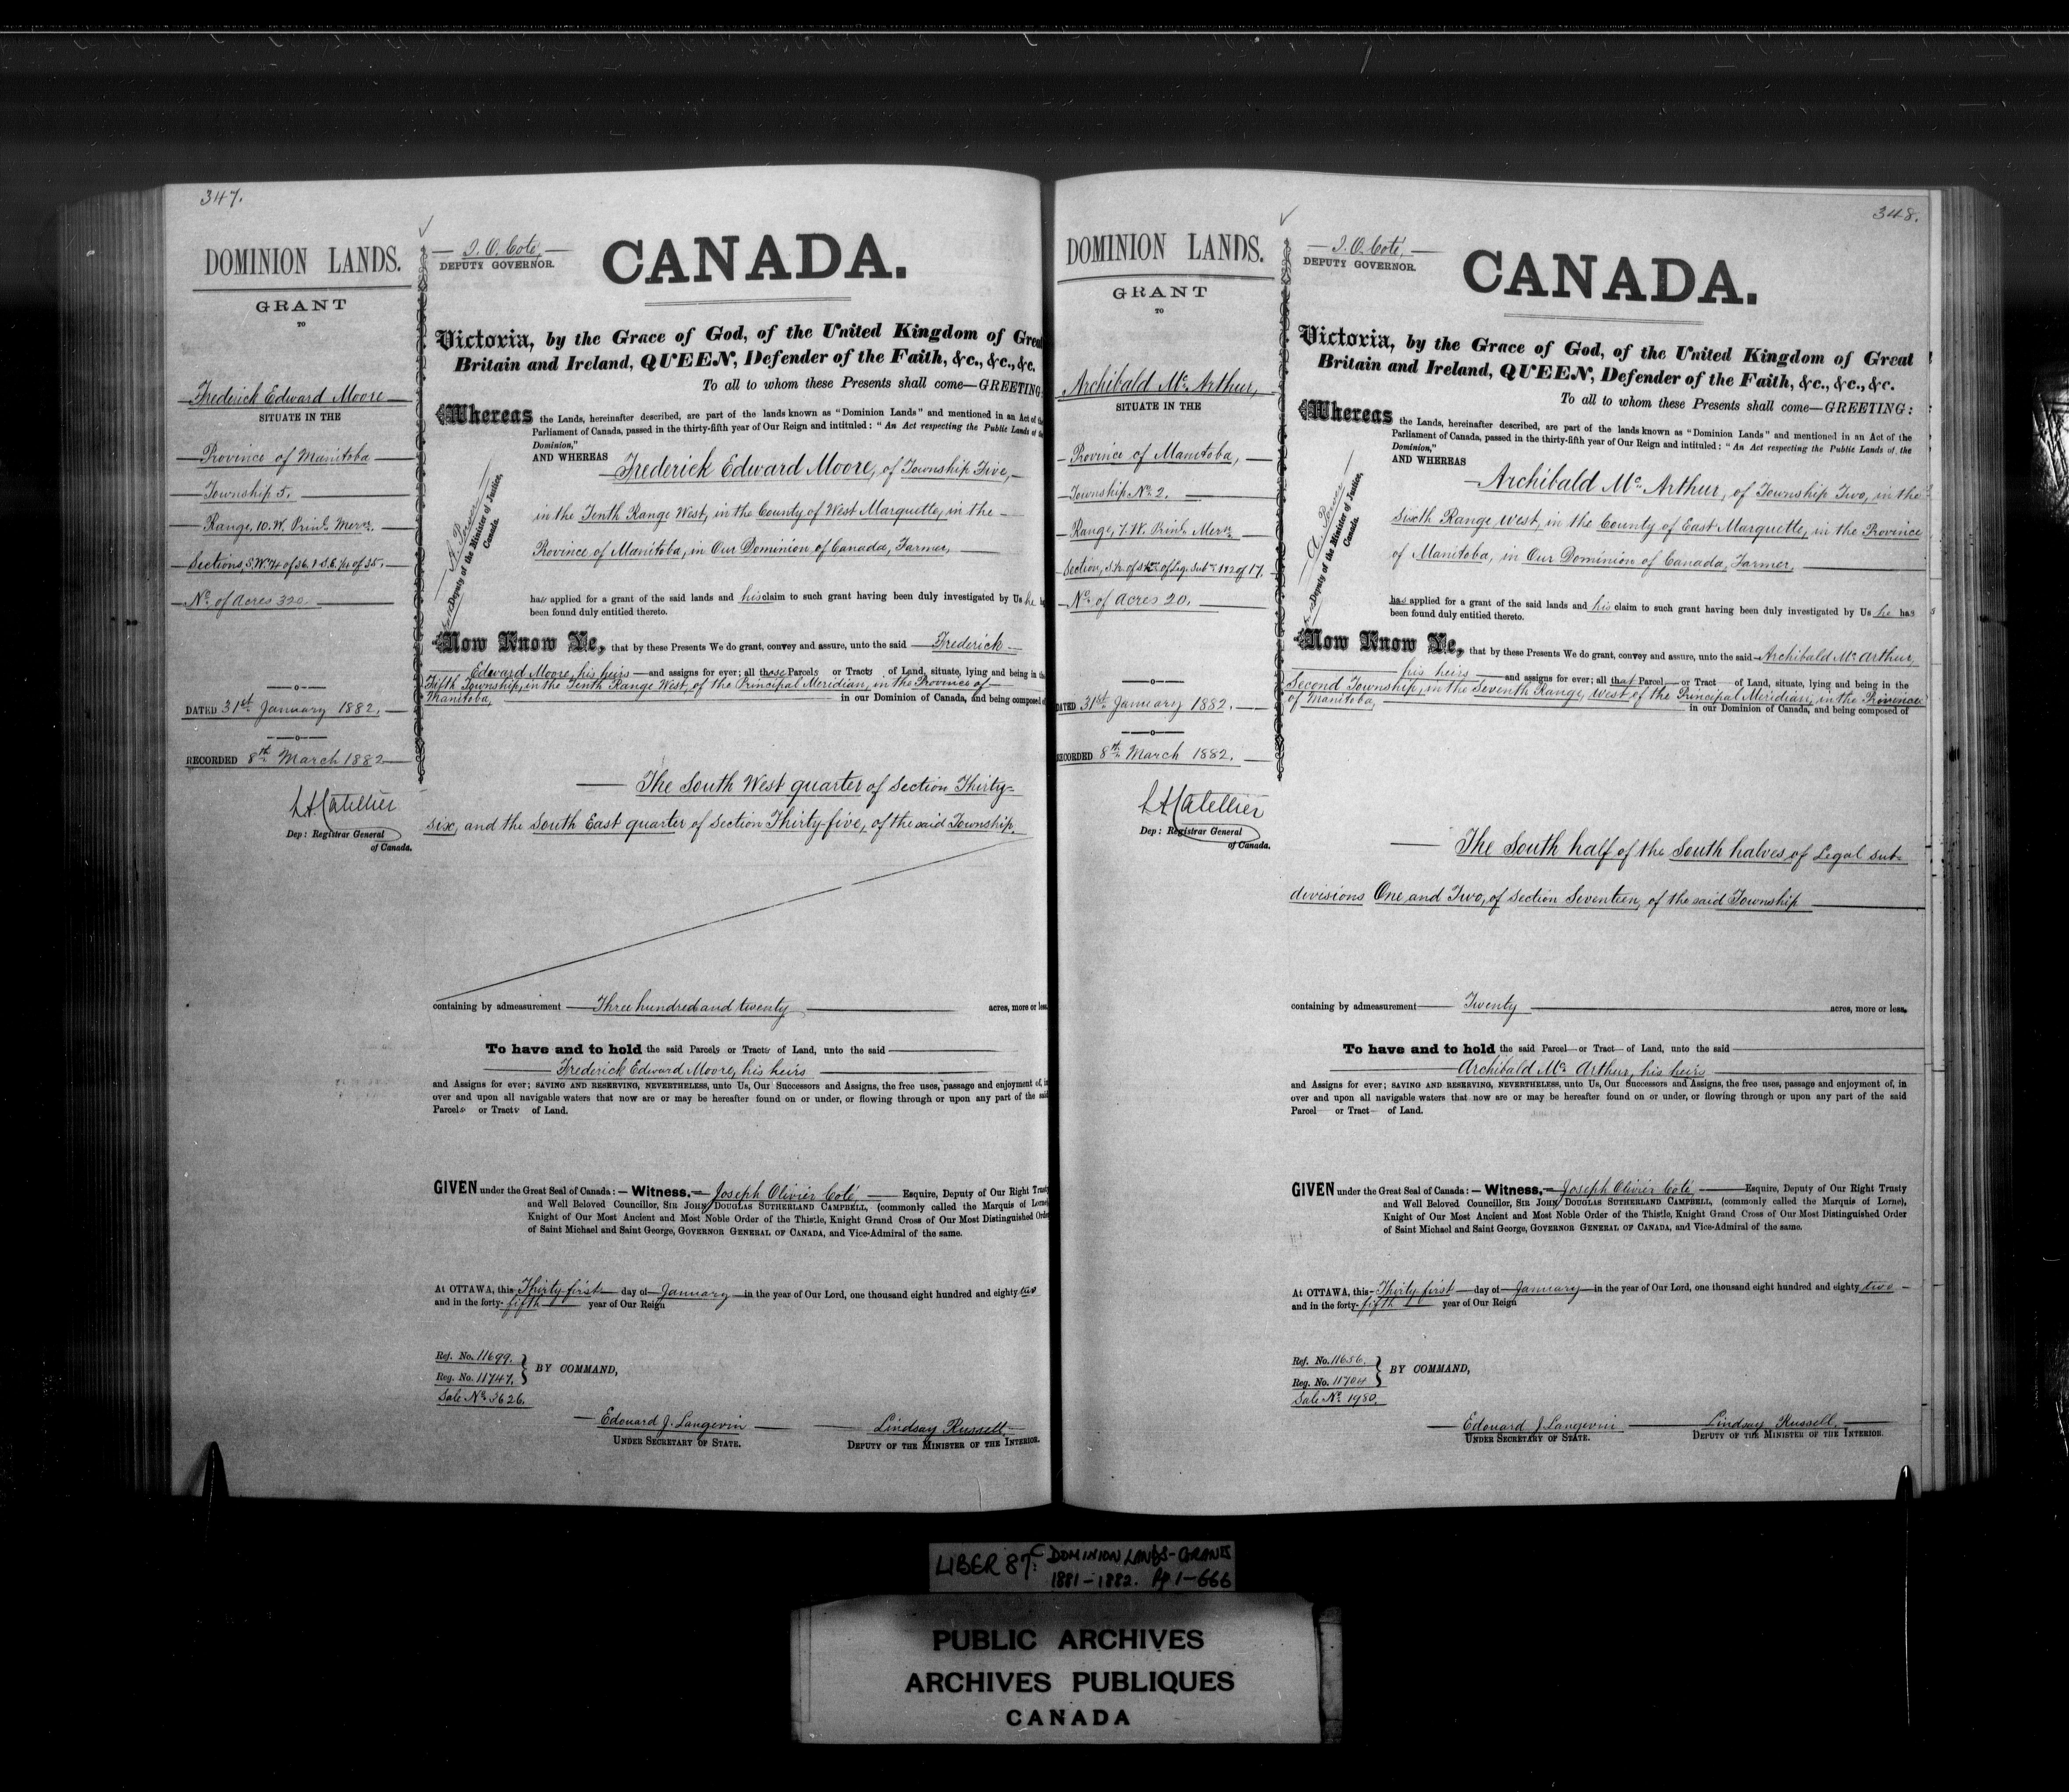 347.
DOMINION LANDS.
GRANT
TO
Frederick Edward Moore
SITUATE IN THE
Province of Manitoba
Township 5.
Range, 10. W. Prinl. Mern.
Sections, S.W. 1/4 of 36. & S.E. 1/4 of 35.
No. of Acres 320
DATED 31st January 1882.
RECORDED 8th March 1882
L.A. Catellier
Dep: Registrar General
of Canada.
J. O. Coté,
DEPUTY GOVERNOR.
CANADA.
Victoria, by the Grace of God, of the United Kingdom of Great
Britain and Ireland, QUEEN, Defender of the Faith, &c., &c., &c.
To all to whom these Presents shall come—GREETING:
Whereas the Lands, hereinafter described, are part of the lands known as "Dominion Lands" and mentioned in an Act of the
Parliament of Canada, passed in the thirty-fifth year of Our Reign and intituled: "An Act respecting the Public Lands of the
Dominion,"
AND WHEREAS Frederick Edward Moore, of Township Five,
in the Tenth Range West, in the County of West Marquette, in the
Province of Manitoba, in Our Dominion of Canada, Farmer,
A. Power
Deputy of the Minister of Justice,
Canada.
has applied for a grant of the said lands and his claim to such grant having been duly investigated by Us he
been found duly entitled thereto.
Now Know Ye, that by these Presents We do grant, convey and assure, unto the said Frederick
Edward Moore, his heirs and assigns for ever; all those Parcels or Tracts of Land, situate, lying and being in the
Fifth Township, in the Tenth Range West, of the Principal Meridian, in the Province of
Manitoba, in our Dominion of Canada, and being composed of
The South West quarter of Section Thirty-
six, and the South East quarter of Section Thirty-five, of the said Township.
containing by admeasurement Three hundred and twenty acres, more or less.
To have and to hold the said Parcels or Tracts of Land, unto the said
Frederick Edward Moore, his heirs
and Assigns for ever; SAVING AND RESERVING, NEVERTHELESS, unto Us, Our Successors and Assigns, the free uses, passage and enjoyment of, in
over and upon all navigable waters that now are or may be hereafter found on or under, or flowing through or upon any part of the said
Parcels or Tracts of Land.
GIVEN under the Great Seal of Canada:—Witness,— Joseph Olivier Coté, Esquire, Deputy of Our Right Trusty
and Well Beloved Councillor, SIR JOHN DOUGLAS SUTHERLAND CAMPBELL, (commonly called the Marquis of Lorne),
Knight of Our Most Ancient and Most Noble Order of the Thistle, Knight Grand Cross of Our Most Distinguished Order
of Saint Michael and Saint George, GOVERNOR GENERAL OF CANADA, and Vice-Admiral of the same.
At OTTAWA, this Thirty first day of January in the year of Our Lord, one thousand eight hundred and eighty two
and in the forty-fifth year of Our Reign
Ref. No. 11699.
Reg. No. 11747.
BY COMMAND,
Sale No. 3626.
Edouard J. Langevin
UNDER SECRETARY OF STATE.
Lindsay Russell
DEPUTY OF THE MINISTER OF THE INTERIOR.
348.
DOMINION LANDS.
GRANT
TO
Archibald Mc. Arthur,
SITUATE IN THE
Province of Manitoba,
Township No. 2.
Range, 7. W. Prinl. Mern.
Section, S.½. of S.½s. of Leg. Subns. 1&2 of 17.
No. of Acres 20.
DATED 31st January 1882.
RECORDED 8th March 1882.
L.A. Catellier
Dep: Registrar General
of Canada.
J. O. Coté,
DEPUTY GOVERNOR.
CANADA.
Victoria, by the Grace of God, of the United Kingdom of Great
Britain and Ireland, QUEEN, Defender of the Faith, &c., &c., &c.
To all to whom these Presents shall come—GREETING:
Whereas the Lands, hereinafter described, are part of the lands known as "Dominion Lands" and mentioned in an Act of the
Parliament of Canada, passed in the thirty-fifth year of Our Reign and intituled: "An Act respecting the Public Lands of the
Dominion,"
AND WHEREAS
Archibald Mc. Arthur, of Township Two, in the
Sixth Range West, in the County of East Marquette, in the Province
of Manitoba, in Our Dominion of Canada, Farmer,
A. Power
Deputy of the Minister of Justice,
Canada.
has applied for a grant of the said lands and his claim to such grant having been duly investigated by Us he has
been found duly entitled thereto.
Now Know Ye, that by these Presents We do grant, convey and assure, unto the said Archibald Mc. Arthur,
his heirs and assigns for ever; all that Parcel or Tract of Land, situate, lying and being in the
Second Township, in the Seventh Range, West of the Principal Meridian, in the Province
of Manitoba, in our Dominion of Canada, and being composed of
The South half of the South halves of Legal sub-
divisions One and Two, of Section Seventeen, of the said Township
containing by admeasurement Twenty acres, more or less.
To have and to hold the said Parcel or Tract of Land, unto the said
Archibald Mc. Arthur, his heirs
and Assigns for ever; SAVING AND RESERVING, NEVERTHELESS, unto Us, Our Successors and Assigns, the free uses, passage and enjoyment of, in
over and upon all navigable waters that now are or may be hereafter found on or under, or flowing through or upon any part of the said
Parcel or Tract of Land.
GIVEN under the Great Seal of Canada:—Witness,— Joseph Olivier Coté, Esquire, Deputy of Our Right Trusty
and Well Beloved Councillor, SIR JOHN DOUGLAS SUTHERLAND CAMPBELL, (commonly called the Marquis of Lorne),
Knight of Our Most Ancient and Most Noble Order of the Thistle, Knight Grand Cross of Our Most Distinguished Order
of Saint Michael and Saint George, GOVERNOR GENERAL OF CANADA, and Vice-Admiral of the same.
At OTTAWA, this Thirty first day of January in the year of Our Lord, one thousand eight hundred and eighty two
and in the forty-fifth year of Our Reign
Ref. No. 11656.
Reg. No. 11704
BY COMMAND,
Sale No. 1980.
Edouard J. Langevin
UNDER SECRETARY OF STATE.
Lindsay Russell,
DEPUTY OF THE MINISTER OF THE INTERIOR.
LIBER 87C: DOMINION LANDS-GRANTS
1881-1882. Pp 1-666
PUBLIC ARCHIVES
ARCHIVES PUBLIQUES
CANADA